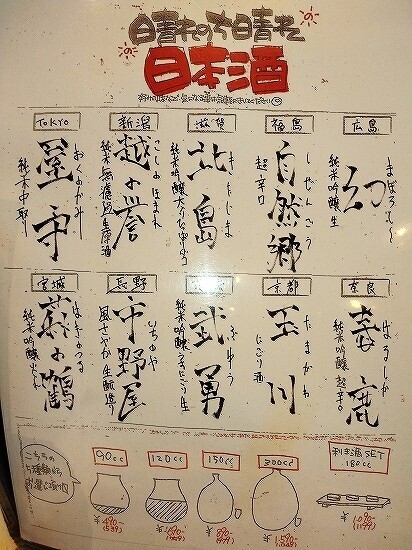 晴れのち晴れの
日本酒
広島
まぼろし
幻
純米吟醸 生
福島
しぜんごう
自然郷
超辛口
滋賀
きたじま
北島
新潟
こしのほまれ
越の誉
純米無濾過生原酒
TOKYO
おくのかみ
屋守
純米中取り
奈良
はるしか
春鹿
純米吟醸 超辛口
京都
たまがわ
玉川
にごり酒
ぶゆう
武勇
長野
いちのや
市野屋
風さやか 生酛造り
宮城
はぎのつる
萩の鶴
純米吟醸
こちらの
90cc
120cc
150cc
300cc
利き酒SET
180cc
¥490-
(539)
¥690-
¥890-
¥1,590-
¥1,090-
(1199)